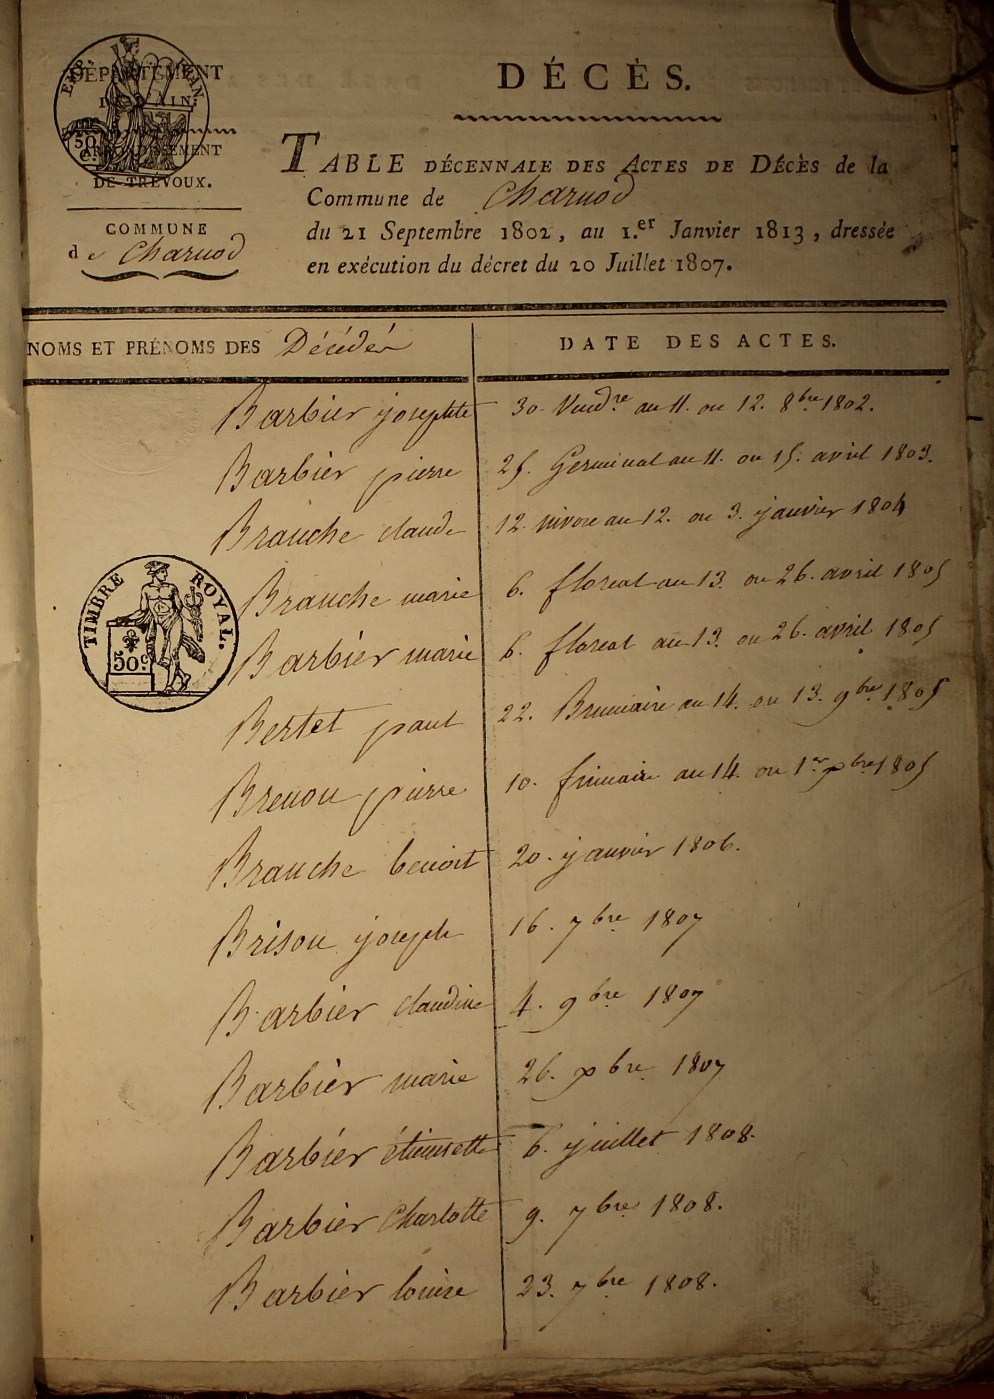 DÉPARTEMENT
DE L'AIN.
ARRONDISSEMENT
DE TRÉVOUX.
COMMUNE
de Charnod
50
DÉCÈS.
TABLE DÉCENNALE DES ACTES DE DÉCÈS de la
Commune de Charnod
du 21 Septembre 1802, au 1.er Janvier 1813, dressée
en exécution du décret du 20 Juillet 1807.
NOMS ET PRÉNOMS DES Décédés
DATE DES ACTES.
Barbier josephte 30. Vendre an 11. ou 12. 8bre 1802.
Barbier pierre 25. Germinal an 11. ou 15. avril 1803.
Brauche claude 12. nivose an 12. ou 3. janvier 1804
Brauche marie 6. floreal an 13. ou 26. avril 1805
Barbier marie 6. floreal an 13. ou 26. avril 1805
Bertet paul 22. Brumaire an 14. ou 13. 9bre 1805
Brenou pierre 10. frimaire an 14. ou 1er xbre 1805
Brauche benoit 20. janvier 1806.
Brisou joseph 16. 7bre 1807
Barbier claudine 4. 9bre 1807
Barbier marie 26. xbre 1807
Barbier étiennette 6. juillet 1808.
Barbier Charlotte 9. 7bre 1808.
Barbier louise 23. 7bre 1808.
TIMBRE ROYAL.
50c